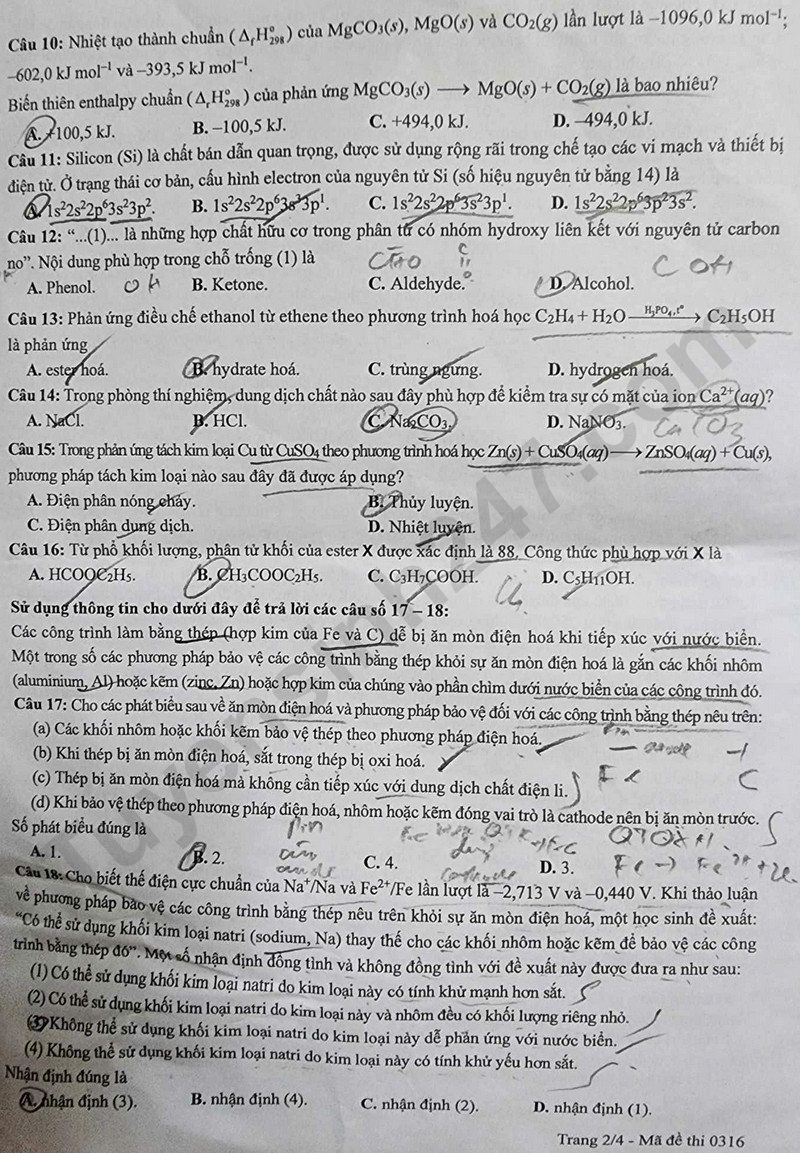 Câu 10: Nhiệt tạo thành chuẩn (ΔfH°298) của MgCO3(s), MgO(s) và CO2(g) lần lượt là –1096,0 kJ mol⁻¹;
–602,0 kJ mol⁻¹ và –393,5 kJ mol⁻¹.
Biến thiên enthalpy chuẩn (ΔrH°298) của phản ứng MgCO3(s) ⟶ MgO(s) + CO2(g) là bao nhiêu?
A. +100,5 kJ. B. –100,5 kJ. C. +494,0 kJ. D. –494,0 kJ.
Câu 11: Silicon (Si) là chất bán dẫn quan trọng, được sử dụng rộng rãi trong chế tạo các vi mạch và thiết bị
điện tử. Ở trạng thái cơ bản, cấu hình electron của nguyên tử Si (số hiệu nguyên tử bằng 14) là
A. 1s²2s²2p⁶3s²3p². B. 1s²2s²2p⁶3s³3p¹. C. 1s²2s²2p⁶3s²3p¹. D. 1s²2s²2p⁶3p²3s².
Câu 12: “...(1)... là những hợp chất hữu cơ trong phân tử có nhóm hydroxy liên kết với nguyên tử carbon
no”. Nội dung phù hợp trong chỗ trống (1) là
C OH
A. Phenol. B. Ketone. C. Aldehyde. D. Alcohol.
Câu 13: Phản ứng điều chế ethanol từ ethene theo phương trình hoá học C2H4 + H2O —H3PO4, t°→ C2H5OH
là phản ứng
A. ester hoá. B. hydrate hoá. C. trùng ngưng. D. hydrogen hoá.
Câu 14: Trong phòng thí nghiệm, dung dịch chất nào sau đây phù hợp để kiểm tra sự có mặt của ion Ca²⁺(aq)?
A. NaCl. B. HCl. C. Na2CO3. D. NaNO3.
Câu 15: Trong phản ứng tách kim loại Cu từ CuSO4 theo phương trình hoá học Zn(s) + CuSO4(aq) ⟶ ZnSO4(aq) + Cu(s),
phương pháp tách kim loại nào sau đây đã được áp dụng?
A. Điện phân nóng chảy. B. Thủy luyện.
C. Điện phân dung dịch. D. Nhiệt luyện.
Câu 16: Từ phổ khối lượng, phân tử khối của ester X được xác định là 88. Công thức phù hợp với X là
A. HCOOC2H5. B. CH3COOC2H5. C. C3H7COOH. D. C5H11OH.
Sử dụng thông tin cho dưới đây để trả lời các câu số 17 – 18:
Các công trình làm bằng thép (hợp kim của Fe và C) dễ bị ăn mòn điện hoá khi tiếp xúc với nước biển.
Một trong số các phương pháp bảo vệ các công trình bằng thép khỏi sự ăn mòn điện hoá là gắn các khối nhôm
(aluminium, Al) hoặc kẽm (zinc, Zn) hoặc hợp kim của chúng vào phần chìm dưới nước biển của các công trình đó.
Câu 17: Cho các phát biểu sau về ăn mòn điện hoá và phương pháp bảo vệ đối với các công trình bằng thép nêu trên:
(a) Các khối nhôm hoặc khối kẽm bảo vệ thép theo phương pháp điện hoá.
(b) Khi thép bị ăn mòn điện hoá, sắt trong thép bị oxi hoá.
(c) Thép bị ăn mòn điện hoá mà không cần tiếp xúc với dung dịch chất điện li.
(d) Khi bảo vệ thép theo phương pháp điện hoá, nhôm hoặc kẽm đóng vai trò là cathode nên bị ăn mòn trước.
Số phát biểu đúng là
A. 1. B. 2. C. 4. D. 3.
Câu 18: Cho biết thế điện cực chuẩn của Na⁺/Na và Fe²⁺/Fe lần lượt là –2,713 V và –0,440 V. Khi thảo luận
về phương pháp bảo vệ các công trình bằng thép nêu trên khỏi sự ăn mòn điện hoá, một học sinh đề xuất:
“Có thể sử dụng khối kim loại natri (sodium, Na) thay thế cho các khối nhôm hoặc kẽm để bảo vệ các công
trình bằng thép đó”. Một số nhận định đồng tình và không đồng tình với đề xuất này được đưa ra như sau:
(1) Có thể sử dụng khối kim loại natri do kim loại này có tính khử mạnh hơn sắt.
(2) Có thể sử dụng khối kim loại natri do kim loại này và nhôm đều có khối lượng riêng nhỏ.
(3) Không thể sử dụng khối kim loại natri do kim loại này dễ phản ứng với nước biển.
(4) Không thể sử dụng khối kim loại natri do kim loại này có tính khử yếu hơn sắt.
Nhận định đúng là
A. nhận định (3). B. nhận định (4). C. nhận định (2). D. nhận định (1).
Trang 2/4 - Mã đề thi 0316